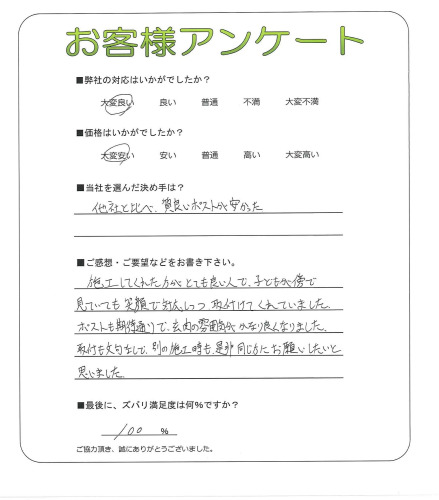 お客様アンケート
■弊社の対応はいかがでしたか?
大変良い 良い 普通 不満 大変不満
■価格はいかがでしたか?
大変安い 安い 普通 高い 大変高い
■当社を選んだ決め手は?
他社と比べ、質良いポストが安かった
■ご感想・ご要望などをお書き下さい。
施工してくれた方がとても良い人で、子どもが傍で
見ていても笑顔で対応しつつ取付けてくれていました。
ポストも期待通りで、玄関の雰囲気がかなり良くなりました。
取付も文句なしで、別の施工時も、是非同じ方にお願いしたいと
思いました。
■最後に、ズバリ満足度は何%ですか?
100 %
ご協力頂き、誠にありがとうございました。